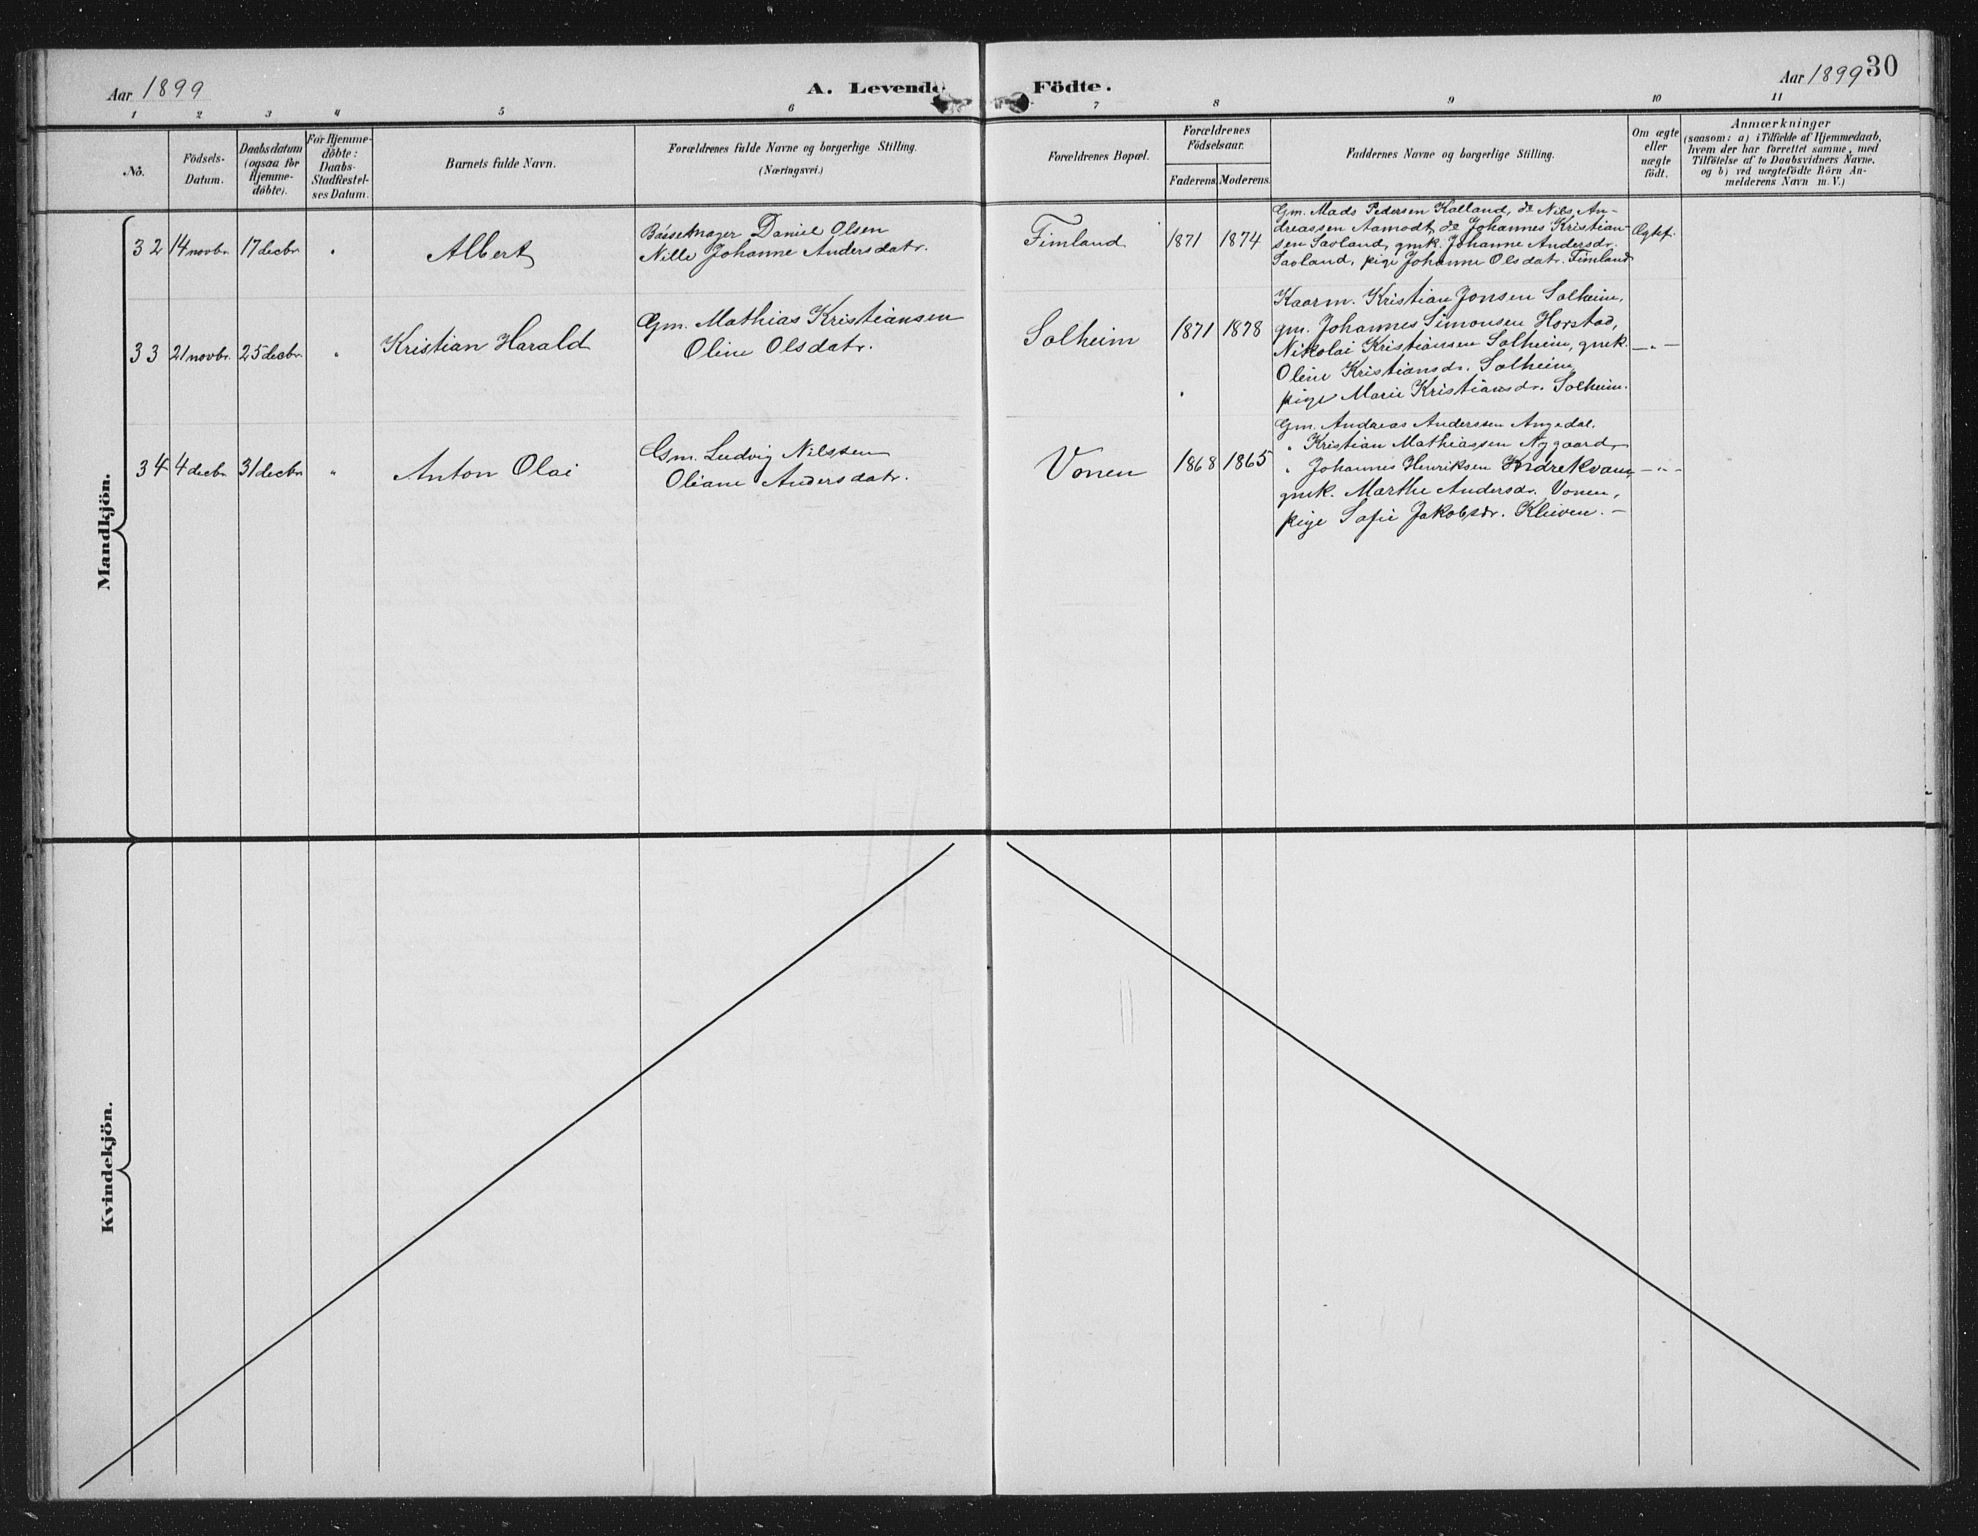 Aar 1899
A. Levende Födte.
Aar 1899
30
1 2 3 4 5 6 7 8 9 10 11
No.
Födsels-
Datum.
Daabsdatum
(ogsaa for
Hjemme-
döbte).
For Hjemme-
döbte:
Daabs-
Stadfæstel-
ses Datum.
Barnets fulde Navn.
Forældrenes fulde Navne og borgerlige Stilling.
(Næringsvei.)
Forældrenes Bopæl.
Forældrenes
Födselsaar.
Faderens. Moderens.
Faddernes Navne og borgerlige Stilling.
Om ægte
eller
uægte
födt.
Anmærkninger
(saasom: a) i Tilfælde af Hjemmedaab,
hvem der har forrettet samme, med
Tilföielse af to Daabsvidners Navne,
og b) ved uægtefödte Börn An-
melderens Navn m. V.)
Mandkjön.
32 14 novbr. 17 decbr. " Albert
Daniel Olsen
Nille Johanne Andersdatr.
Fimland 1871 1874
Gm. Mads Pedersen Kalland, do Nils An-
dreassen Aamodt, do Johannes Kristian-
sen Savland, gmk. Johanne Andersdr.
Savland, pige Johanne Olsdatr. Fimland
Ægtef.
33 21 novbr. 25 decbr. " Kristian Harald
Gm. Mathias Kristiansen
Oline Olsdatr.
Solheim 1871 1878
Kaarm. Kristian Jonsen Solheim,
gm. Johannes Simonsen Horstad,
Nikolai Kristiansen Solheim, gmk.
Oline Kristiansdr. Solheim,
pige Marie Kristiansdr. Solheim.
— " —
34 4 decbr. 31 decbr. " Anton Olai
Gm. Ludvig Nilssen
Oliane Andersdatr.
Vonen 1868 1865
Gm. Andreas Anderssen Angedal.
" Kristian Mathiassen Nygaard,
" Johannes Henriksen Indrekvam,
gmk. Marthe Andersdr. Vonen,
pige Sofie Jakobsdr. Kleiven. —
— " —
Kvindekjön.